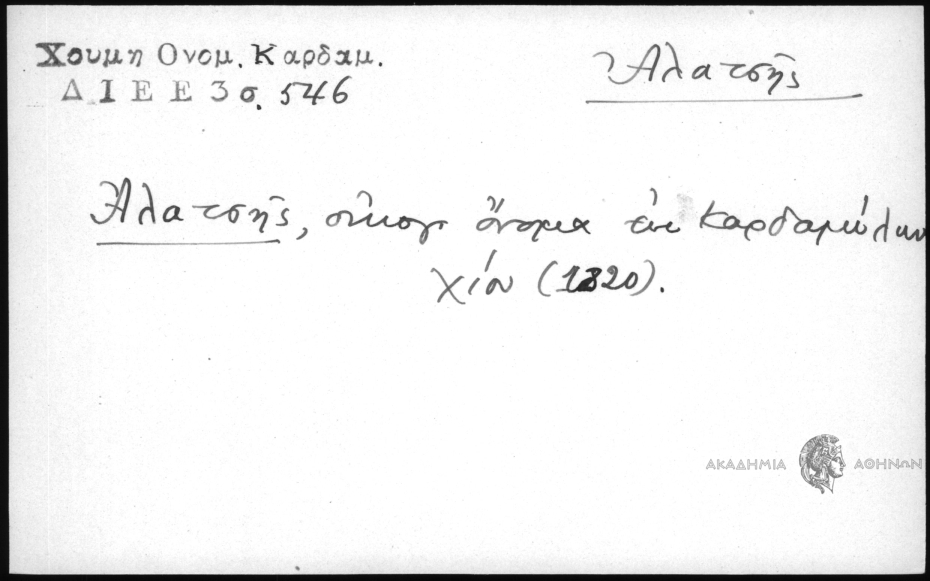 Χουμη Ονομ. Καρδαμ.
ΔΙΕΕ 3 σ. 546
Ἀλατσῆς
Ἀλατσῆς, οἰκογ. ὄνομα ἐκ Καρδαμύλων
Χίου (1820).
ΑΚΑΔΗΜΙΑ ΑΘΗΝΩΝ